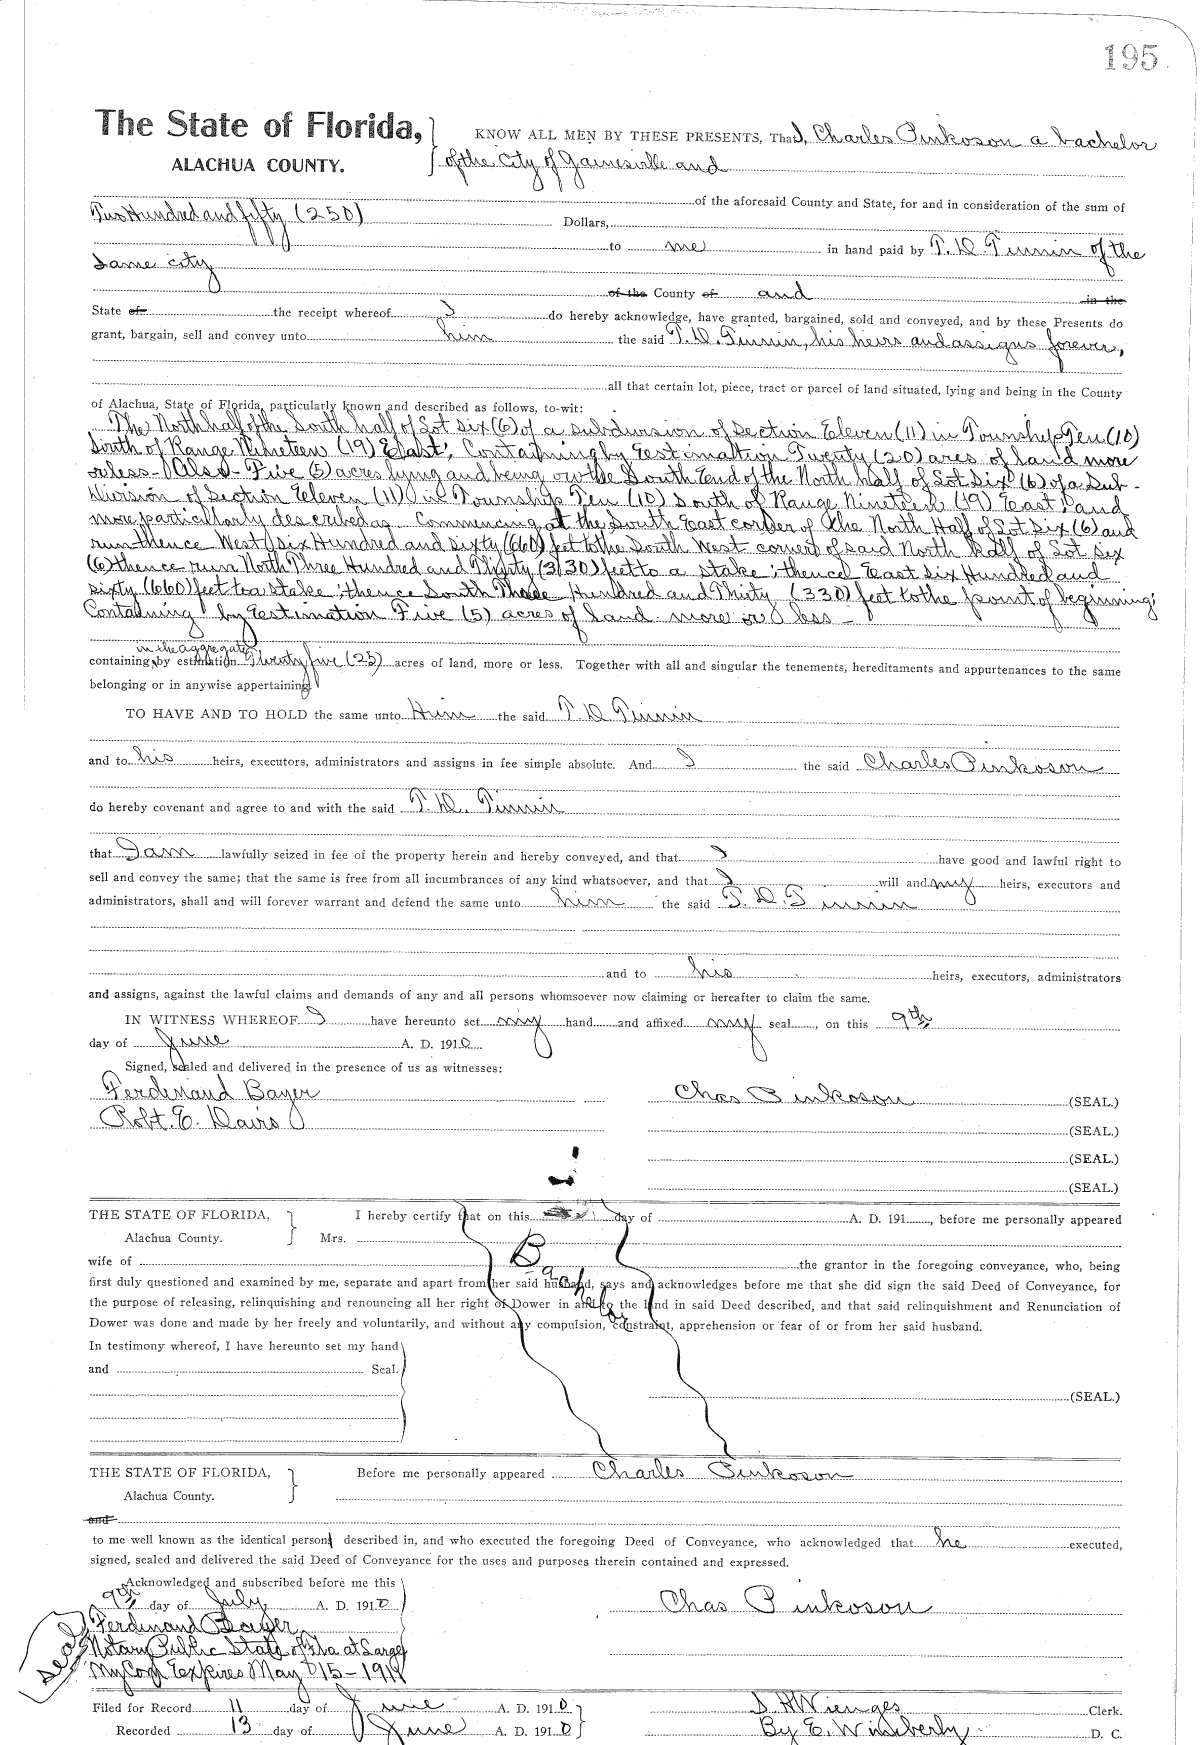 195
The State of Florida, KNOW ALL MEN BY THESE PRESENTS, That I, Charles Pinkoson a bachelor
ALACHUA COUNTY. of the City of Gainesville and
of the aforesaid County and State, for and in consideration of the sum of
Two Hundred and fifty (250) Dollars,
to me in hand paid by T. D. Tinnin of the
same city
of the County of and in the
State of the receipt whereof I do hereby acknowledge, have granted, bargained, sold and conveyed, and by these Presents do
grant, bargain, sell and convey unto him the said T. D. Tinnin, his heirs and assigns forever,
all that certain lot, piece, tract or parcel of land situated, lying and being in the County
of Alachua, State of Florida, particularly known and described as follows, to-wit:
The North half of the South half of Lot Six (6) of a subdivision of Section Eleven (11) in Township Ten (10)
South of Range Nineteen (19) East; Containing by Estimation Twenty (20) acres of land more
or less - Also - Five (5) acres lying and being on the South End of the North half of Lot Six (6) of a Sub-
division of Section Eleven (11) in Township Ten (10) South of Range Nineteen (19) East, and
more particularly described as Commencing at the South East corner of the North Half of Lot Six (6) and
run thence West Six Hundred and Sixty (660) feet to the South West corner of said North half of Lot Six
(6) thence run North Three Hundred and Thirty (330) feet to a stake; thence East Six Hundred and
sixty (660) feet to a stake; thence South Three Hundred and Thirty (330) feet to the point of beginning;
Containing by Estimation Five (5) acres of land more or less -
in the aggregate
containing by estimation Twenty five (25) acres of land, more or less. Together with all and singular the tenements, hereditaments and appurtenances to the same
belonging or in anywise appertaining.
TO HAVE AND TO HOLD the same unto Him the said T. D. Tinnin
and to his heirs, executors, administrators and assigns in fee simple absolute. And I the said Charles Pinkoson
do hereby covenant and agree to and with the said T. D. Tinnin
that I am lawfully seized in fee of the property herein and hereby conveyed, and that I have good and lawful right to
sell and convey the same; that the same is free from all incumbrances of any kind whatsoever, and that I will and my heirs, executors and
administrators, shall and will forever warrant and defend the same unto him the said T. D. Tinnin
and to his heirs, executors, administrators
and assigns, against the lawful claims and demands of any and all persons whomsoever now claiming or hereafter to claim the same.
IN WITNESS WHEREOF I have hereunto set my hand and affixed my seal, on this 9th
day of June A. D. 1910.
Signed, sealed and delivered in the presence of us as witnesses:
Ferdinand Bayer Chas Pinkoson (SEAL.)
Robt. E. Davis (SEAL.)
(SEAL.)
(SEAL.)
THE STATE OF FLORIDA, I hereby certify that on this day of A. D. 191, before me personally appeared
Alachua County. Mrs.
wife of the grantor in the foregoing conveyance, who, being
Bachelor
first duly questioned and examined by me, separate and apart from her said husband, says and acknowledges before me that she did sign the said Deed of Conveyance, for
the purpose of releasing, relinquishing and renouncing all her right of Dower in and to the land in said Deed described, and that said relinquishment and Renunciation of
Dower was done and made by her freely and voluntarily, and without any compulsion, constraint, apprehension or fear of or from her said husband.
In testimony whereof, I have hereunto set my hand
and Seal.
(SEAL.)
THE STATE OF FLORIDA, Before me personally appeared Charles Pinkoson
Alachua County.
and
to me well known as the identical person described in, and who executed the foregoing Deed of Conveyance, who acknowledged that he executed,
signed, sealed and delivered the said Deed of Conveyance for the uses and purposes therein contained and expressed.
Acknowledged and subscribed before me this
9th day of July A. D. 1910 Chas Pinkoson
Ferdinand Bayer
Notary Public State of Fla at Large
My Com Expires May 15-191
seal
Filed for Record 11 day of June A. D. 1910 S. H Wienges Clerk.
Recorded 13 day of June A. D. 1910 By E. Wimberly D. C.